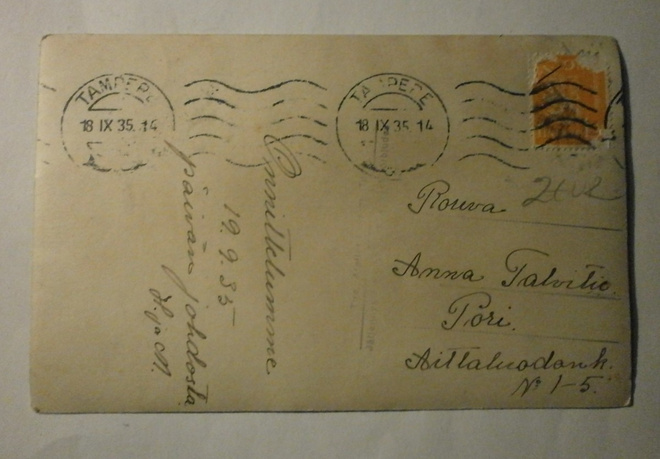 TAMPERE
18 IX 35. 14
TAMPERE
18 IX 35. 14
Onnittelumme
19.9.35
päivän johdosta
H. ja M.
Rouva
Anna Talvitie.
Pori.
Aittaluodonk.
No 1-5.